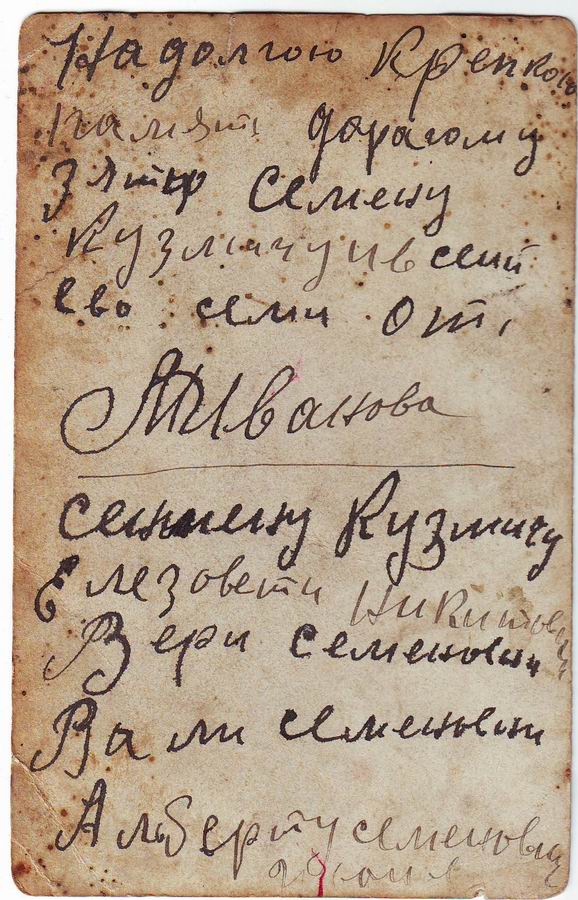 На долгою крепкою
память дарагому
зятю Семену
Кузмичу и всей
ево семи От
А Иванова
семену Кузмичу
Елезовети Никитовни
Вери семеновни
Вали семеновни
Альберту семенович